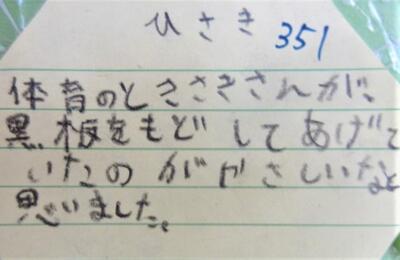 ひさき 351
体育のときささきさんが、
黒板をもどしてあげて
いたのがやさしいなと
思いました。